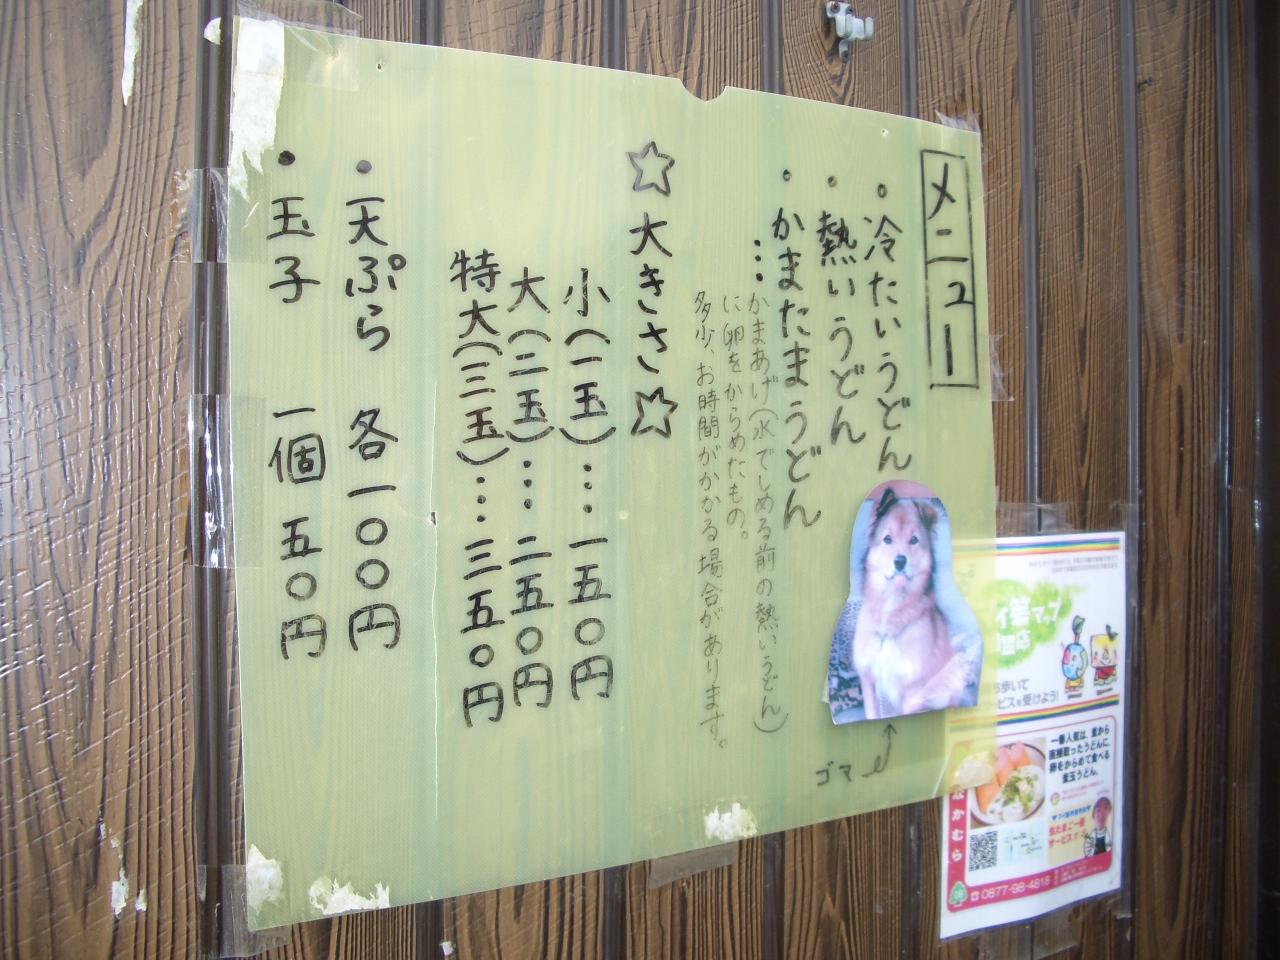 メニュー
・冷たいうどん
・熱いうどん
・かまたまうどん
…かまあげ(水でしめる前の熱いうどん)
に卵をからめたもの。
多少、お時間がかかる場合があります。
☆大きさ☆
小(一玉)…一五〇円
大(二玉)…二五〇円
特大(三玉)…三五〇円
・天ぷら 各一〇〇円
・玉子 一個 五〇円
ゴマ
箸マップ
店
歩いて
ービスを受けよう!
一番人気は、釜から
直接取ったうどんに
卵をからめて食べる
釜玉うどん。
生たまご一個
サービス!!
なかむら
☎0877-98-4818